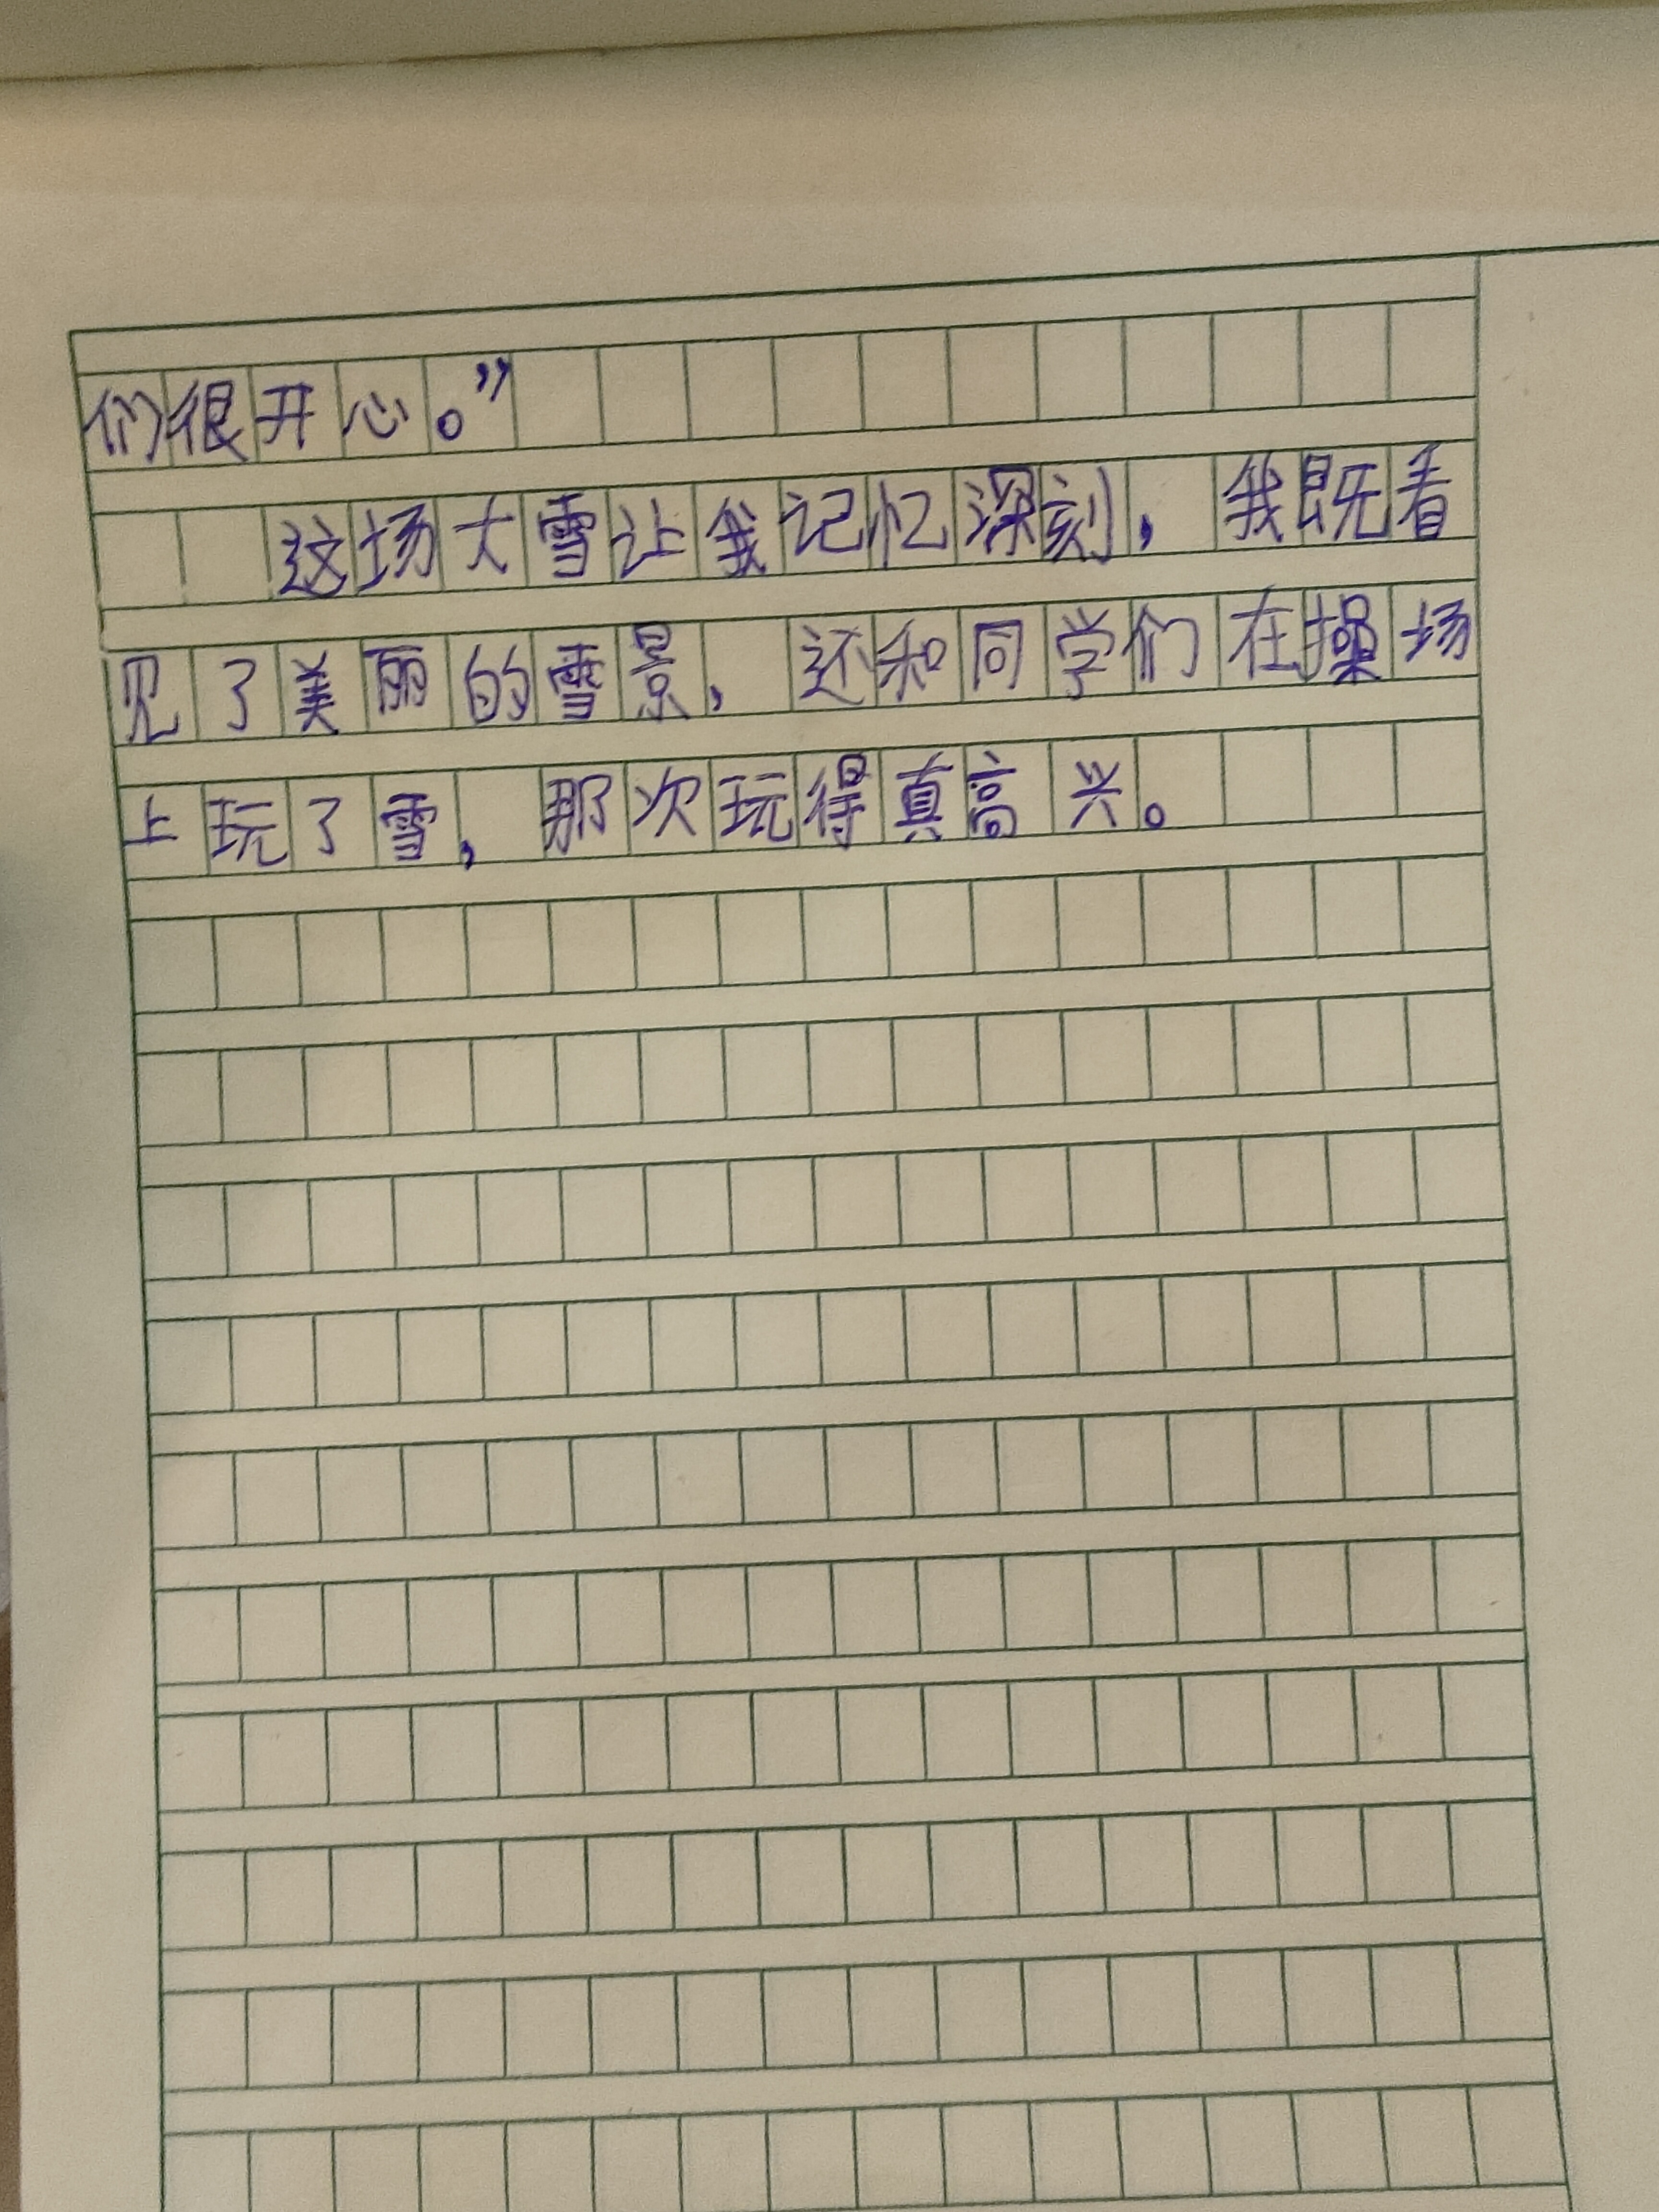 们很开心。”
这场大雪让我记忆深刻，我既看
见了美丽的雪景，还和同学们在操场
上玩了雪，那次玩得真高兴。